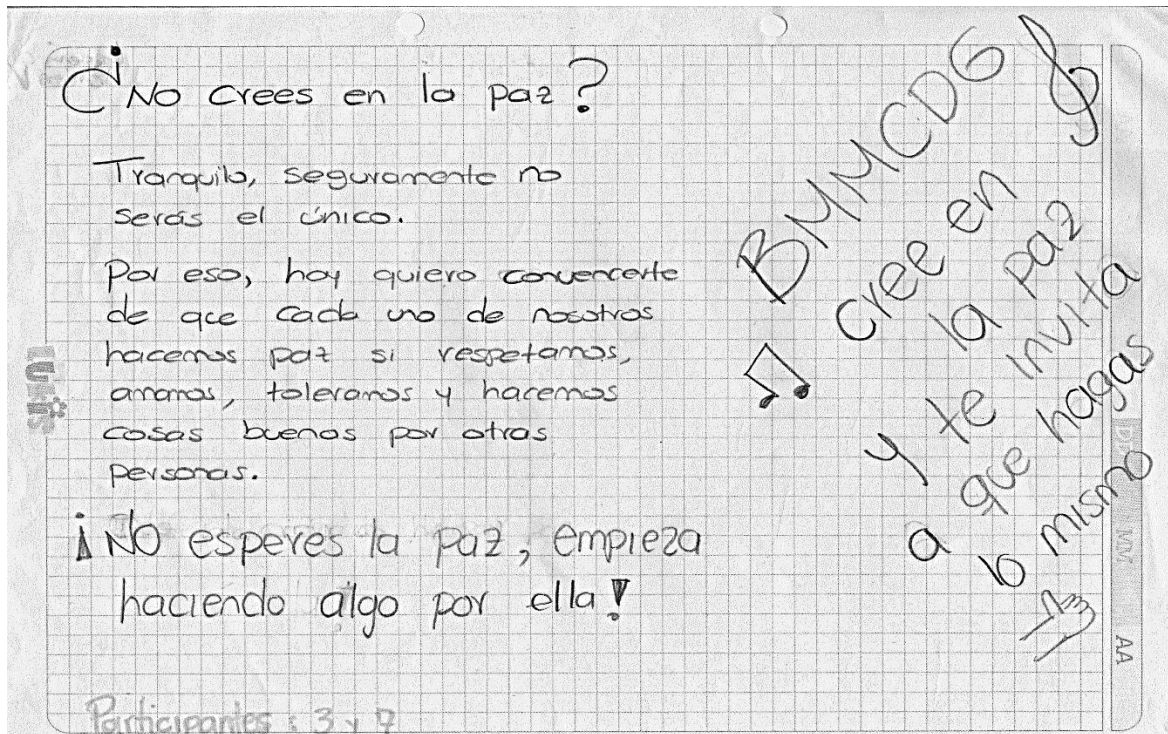 ¿No crees en la paz?
Tranquilo, seguramente no
serás el único.
Por eso, hoy quiero convencerte
de que cada uno de nosotros
hacemos paz si respetamos,
amamos, toleramos y hacemos
cosas buenas por otras
personas.
¡No esperes la paz, empieza
haciendo algo por ella!
Participantes: 3 y 7
BMMCDG
cree en
la paz
y te invita
a que hagas
lo mismo
DD
MM
AA